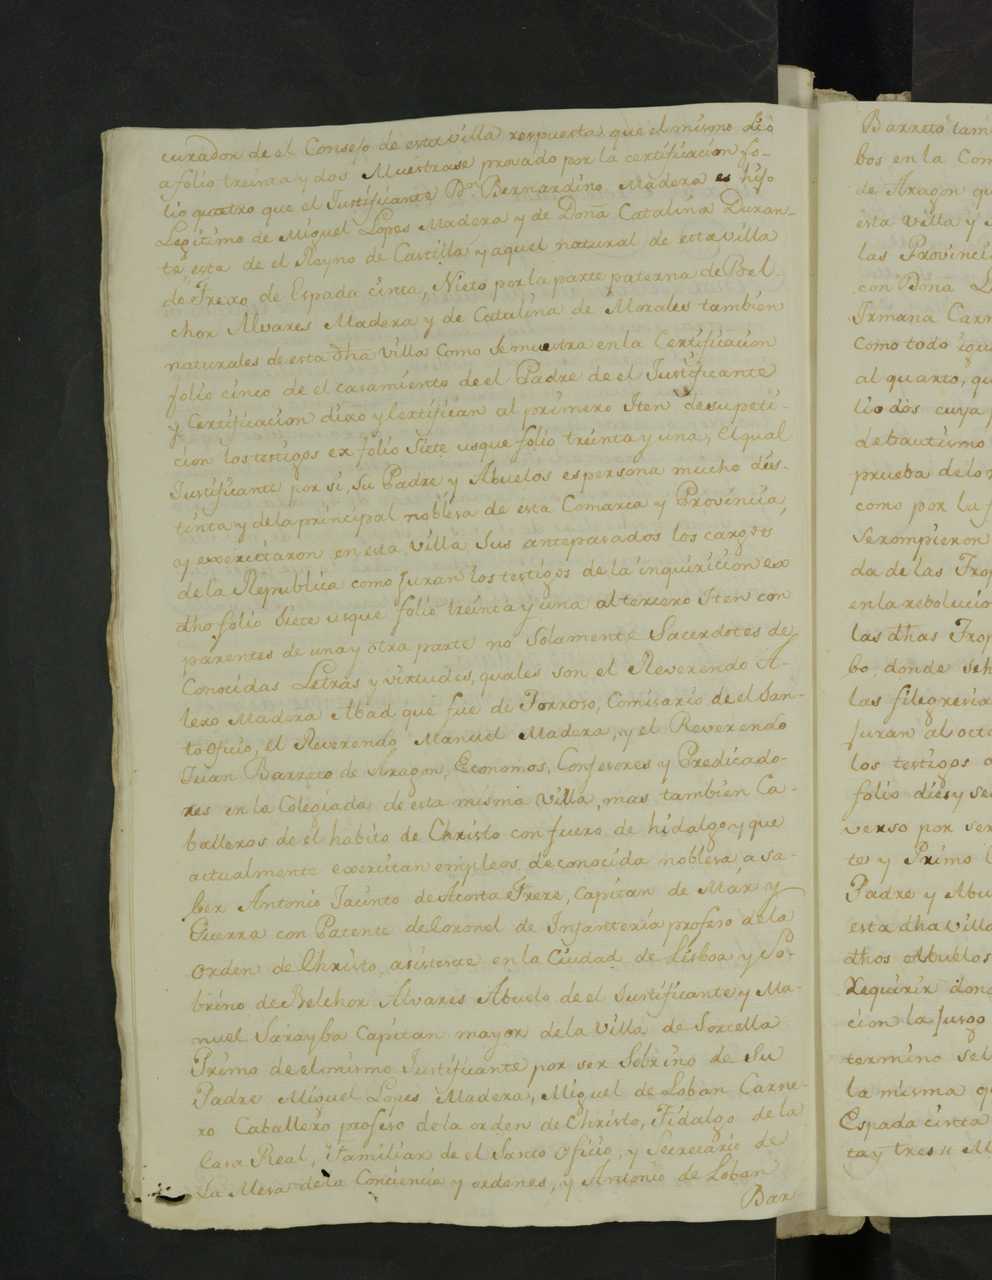 curador de el Consejo de esta villa respuesta que el mismo dio
a folio treinta y dos Muestrase provado por la certificacion fo-
lio quatro que el Justificante Dn. Bernardino Madera es hijo
Legitimo de Miguel Lopes Madera y de Doña Catalina Duran-
te esta de el Reyno de Castilla y aquel natural de esta villa
de Frexo de Espada cinta, Nieto por la parte paterna de Bel-
chor Alvares Madera y de Catalina de Morales tambien
naturales de esta dha villa como se muestra en la Certificacion
folio cinco de el casamiento de el Padre de el Justificante
y Certificacion dixo y Certifican al primero Iten de su peti-
cion los testigos ex folio Siete usque folio treinta y una, el qual
Justificante por si, su Padre y Abuelos es persona mucho dis-
tinta y de la principal nobleva de esta Comarca y Provincia,
y exercitaron en esta villa sus antepasados los cargos
de la Republica como juran los testigos de la inquiricion ex
dho folio Siete usque folio treinta y una al tercero Iten con
parentes de una y otra parte no Solamente Sacerdotes de
Conocidas Letras y virtudes, quales son el Reverendo A-
lexo Madera Abad que fue de Torroso, Comisario de el San-
to Oficio, el Reverendo Manuel Madera, y el Reverendo
Juan Barreto de Aragon, Economos, Confesores y Predicado-
res en la Colegiada de esta misma villa, mas tambien Ca-
balleros de el habito de Christo con fuero de hidalgo y que
actualmente exercitan empleos de conocida nobleva a sa-
ber Antonio Jacinto de Acosta Frere, Capitan de Mar y
Guerra con Patente de Coronel de Infanteria profeso de la
Orden de Christo, asistente en la Ciudad de Lisboa y So-
brino de Belchor Alvares Abuelo de el Justificante y Ma-
nuel Sarayba Capitan mayor de la villa de Sorcella
Primo de el mismo Justificante por ser Sobrino de Su
Padre Miguel Lopes Madera, Miguel de Loban Carne-
ro Caballero profeso de la orden de Christo, Fidalgo de la
Casa Real, Familiar de el Santo Oficio, y Secretario de
La Mesa de la Conciencia y ordenes, y Antonio de Loban
Bar
Barreto tam
bos en la Com
de Aragon qu
esta villa y
las Provinci
con Doña L
Irmana Carn
como todo igu
al quarto, qu
lio dos cuya
de bautismo
prueba de lo
como por la
se rompieron
da de las Trop
en la rebolucio
las dhas Trop
bo, donde seh
las filegresia
juran al octa
los testigos
folio dies y se
verso por ser
te y Primo
Padre y Abu
esta dha Villa
dhos Abuelos
Requirir dond
cion la juzgo
termino sel
la misma q
Espada cinta
ta y tres